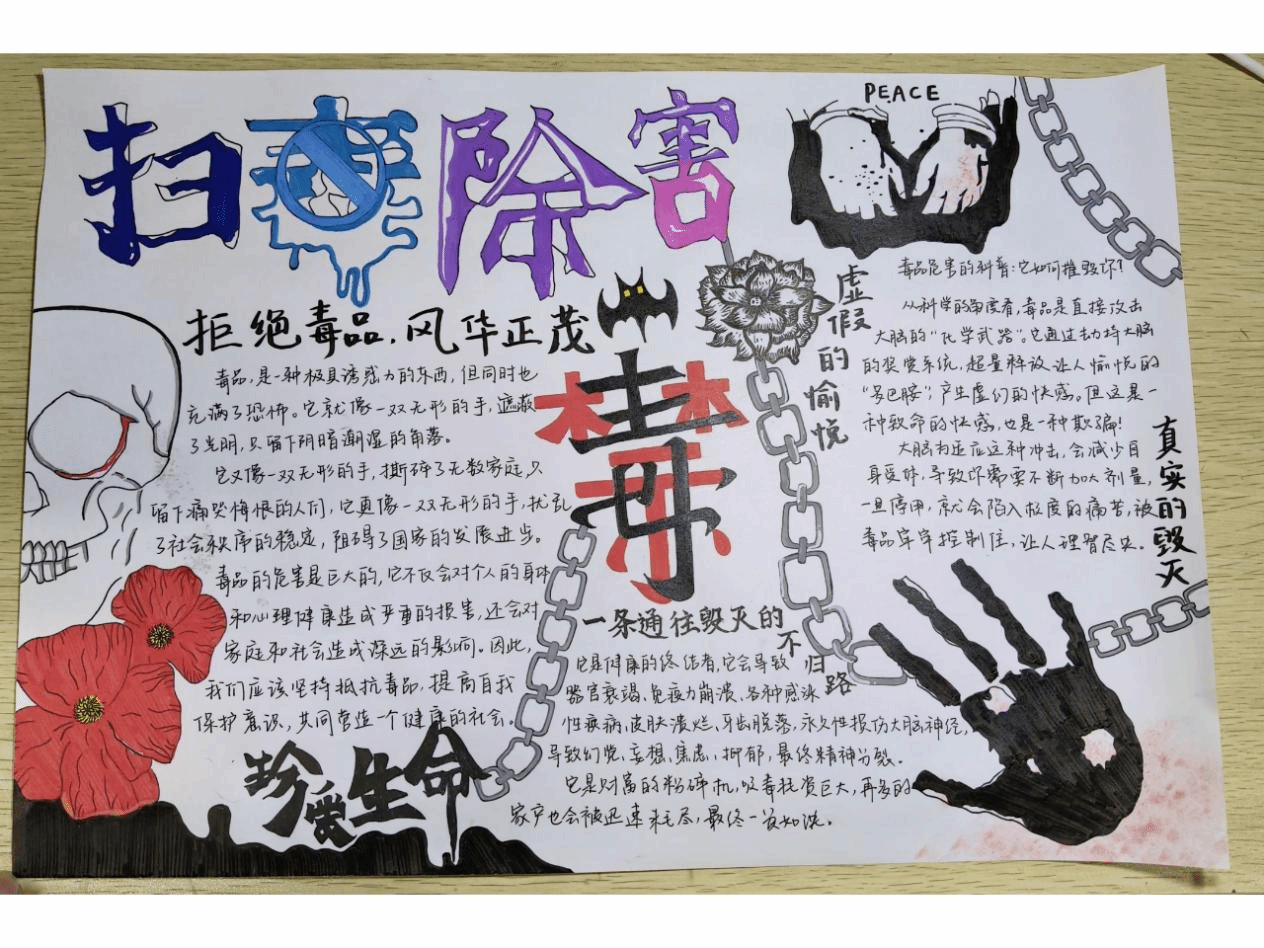 扫毒除害
PEACE
拒绝毒品,风华正茂
毒品,是一种极具诱惑力的东西,但同时也
充满了恐怖。它就像一双无形的手,遮蔽
了光明,只留下阴暗潮湿的角落。
它又像一双无形的手,撕碎了无数家庭,只
留下痛哭悔恨的人们,它更像一双无形的手,扰乱
了社会秩序的稳定,阻碍了国家的发展进步。
毒品的危害是巨大的,它不仅会对个人的身体
和心理健康造成严重的损害,还会对
家庭和社会造成深远的影响。因此,
我们应该坚持抵抗毒品,提高自我
保护意识,共同营造一个健康的社会。
珍爱生命
毒
虚假的愉悦
一条通往毁灭的不归路
它是健康的终结者,它会导致
器官衰竭、免疫力崩溃、各种感染
性疾病,皮肤溃烂,牙齿脱落,永久性损伤大脑神经,
导致幻觉、妄想、焦虑、抑郁,最终精神分裂。
它是财富的粉碎机,吸毒耗资巨大,再多的
家产也会被迅速耗尽,最终一贫如洗。
毒品危害的科普:它如何摧毁你?
从科学的角度看,毒品是直接攻击
大脑的“化学武器”。它通过劫持大脑
的奖赏系统,超量释放让人愉悦的
“多巴胺”,产生虚幻的快感。但这是一
种致命的快感,也是一种欺骗!
大脑为适应这种冲击,会减少自
身受体,导致你需要不断加大剂量,
一旦停用,就会陷入极度的痛苦,被
毒品牢牢控制住,让人理智尽失。
真实的毁灭